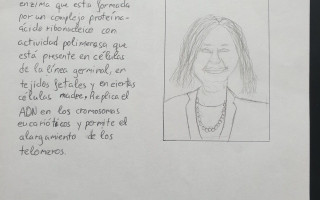 enzima que esta formada
por un complejo proteína-
ácido ribonucleico con
actividad polimerasa que
está presente en células
de la línea germinal, en
tejidos fetales y en ciertas
células madre. Replica el
ADN en los cromosomas
eucarióticos y permite el
alargamiento de los
telómeros.